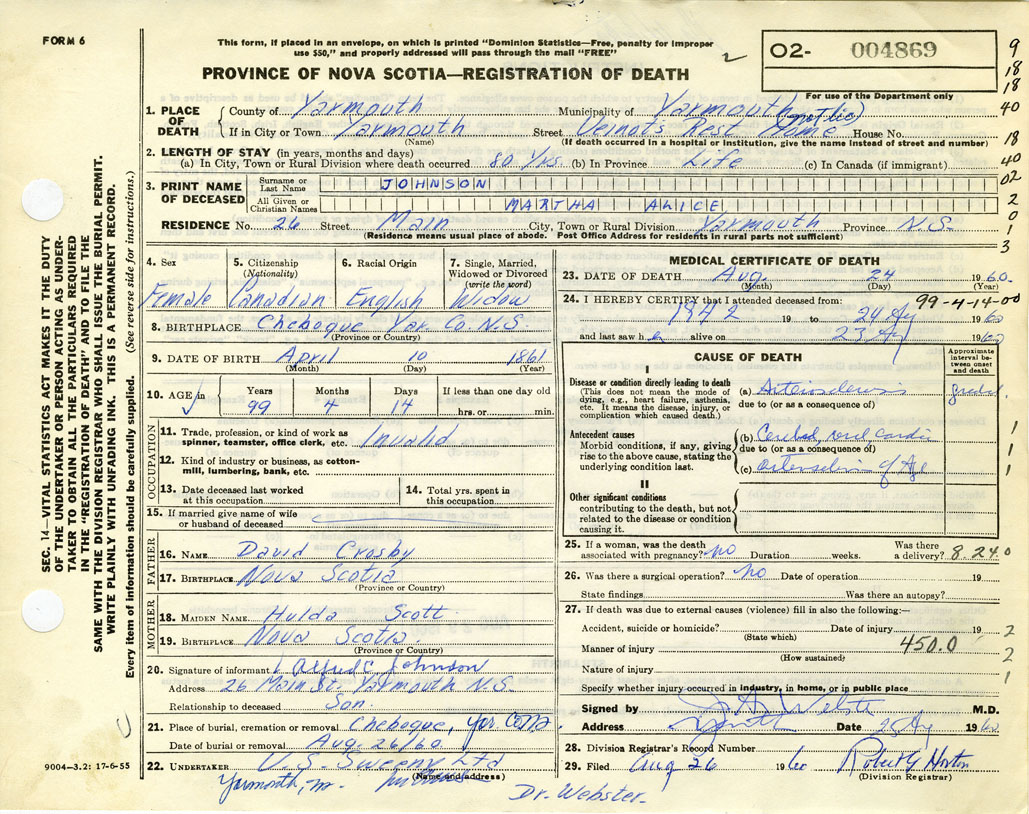 FORM 6
This form, if placed in an envelope, on which is printed "Dominion Statistics—Free, penalty for improper
use $50," and properly addressed will pass through the mail "FREE"
2
PROVINCE OF NOVA SCOTIA—REGISTRATION OF DEATH
O2- 004869
For use of the Department only
9
18
18
40
18
40
02
2
0
1
3
1. PLACE OF DEATH
County of Yarmouth Municipality of Yarmouth
If in City or Town Yarmouth Street Veinot's Rest Home House No.
(Name) (If death occurred in a hospital or institution, give the name instead of street and number)
2. LENGTH OF STAY (in years, months and days)
(a) In City, Town or Rural Division where death occurred 80 Yrs. (b) In Province Life (c) In Canada (if immigrant)
3. PRINT NAME OF DECEASED
Surname or Last Name JOHNSON
All Given or Christian Names MARTHA ALICE
RESIDENCE No. 26 Street Main City, Town or Rural Division Yarmouth Province N.S.
(Residence means usual place of abode. Post Office Address for residents in rural parts not sufficient)
SEC. 14—VITAL STATISTICS ACT MAKES IT THE DUTY
OF THE UNDERTAKER OR PERSON ACTING AS UNDER-
TAKER TO OBTAIN ALL THE PARTICULARS REQUIRED
IN THE "REGISTRATION OF DEATH" AND TO FILE THE
SAME WITH THE DIVISION REGISTRAR WHO SHALL ISSUE THE BURIAL PERMIT.
WRITE PLAINLY WITH UNFADING INK. THIS IS A PERMANENT RECORD.
Every item of information should be carefully supplied. (See reverse side for instructions.)
4. Sex 5. Citizenship (Nationality) 6. Racial Origin 7. Single, Married, Widowed or Divorced (write the word)
Female Canadian English Widow
8. BIRTHPLACE Cheboque Yar. Co. N.S.
(Province or Country)
9. DATE OF BIRTH April 10 1861
(Month) (Day) (Year)
10. AGE in Years Months Days If less than one day old
99 4 14 hrs. or min.
OCCUPATION
11. Trade, profession, or kind of work as
spinner, teamster, office clerk, etc. Invalid
12. Kind of industry or business, as cotton-
mill, lumbering, bank, etc.
13. Date deceased last worked at this occupation
14. Total yrs. spent in this occupation
15. If married give name of wife
or husband of deceased
FATHER
16. NAME David Crosby
17. BIRTHPLACE Nova Scotia
(Province or Country)
MOTHER
18. MAIDEN NAME Hulda Scott
19. BIRTHPLACE Nova Scotia.
(Province or Country)
20. Signature of informant Alfred C Johnson
Address 26 Main St. Yarmouth N.S.
Relationship to deceased Son.
21. Place of burial, cremation or removal Cheboque, Yar
Date of burial or removal Aug. 26/60
22. UNDERTAKER V.S. Sweeny Ltd
(Name and address)
Yarmouth,
9004—3.2: 17-6-55
MEDICAL CERTIFICATE OF DEATH
23. DATE OF DEATH Aug 24 1960
(Month) (Day) (Year)
24. I HEREBY CERTIFY that I attended deceased from: 99-4-14-00
1942 19 to 24 Ag 1960
and last saw h alive on 23 Ag 1960
CAUSE OF DEATH
Approximate interval between onset and death
I
Disease or condition directly leading to death
(This does not mean the mode of
dying, e.g., heart failure, asthenia,
etc. It means the disease, injury, or
complication which caused death.)
(a)
due to (or as a consequence of)
Antecedent causes
Morbid conditions, if any, giving
rise to the above cause, stating the
underlying condition last.
(b)
due to (or as a consequence of)
(c) of Age
1
1
1
II
Other significant conditions
contributing to the death, but not
related to the disease or condition
causing it.
25. If a woman, was the death
associated with pregnancy? no Duration weeks. Was there a delivery? 8.24.0
26. Was there a surgical operation? no Date of operation 19
State findings Was there an autopsy?
27. If death was due to external causes (violence) fill in also the following:—
Accident, suicide or homicide? Date of injury 19 2
(State which)
Manner of injury 450.0 2
(How sustained)
Nature of injury 1
Specify whether injury occurred in industry, in home, or in public place
Signed by Webster M.D.
Address Yarmouth Date 25 Ag 1960
28. Division Registrar's Record Number
29. Filed Aug 26 1960 Robert G Horton
(Division Registrar)
Dr. Webster.